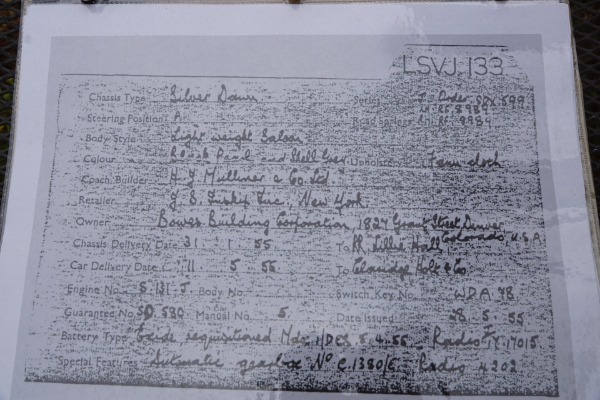 LSVJ.133
Chassis Type Silver Dawn Series J. Order SDX 599
Steering Position A Road Springs RH. RF. 8984
Body Style Light weight Saloon
Colour Black Pearl and Shell Grey Upholstery Fawn cloth
Coach Builder H J Mulliner & Co. Ltd
Retailer J. S. Inskip Inc., New York.
Owner Bowes Building Corporation, 1827 Grant Street Denver Colorado, U.S.A
Chassis Delivery Date 31 . 1 . 55 To Lillie Hall
Car Delivery Date 11 . 5 . 55 To Claridge Holt & Co
Engine No S 131 J Body No Switch Key No WDA 78
Guarantee No SD 530 Manual No 5. Date Issued 28. 5. 55
Battery Type Exide requisitioned 5.4.55 Radio FX 17015
Special Features Automatic gearbox No C.1380/E. Radio 4202